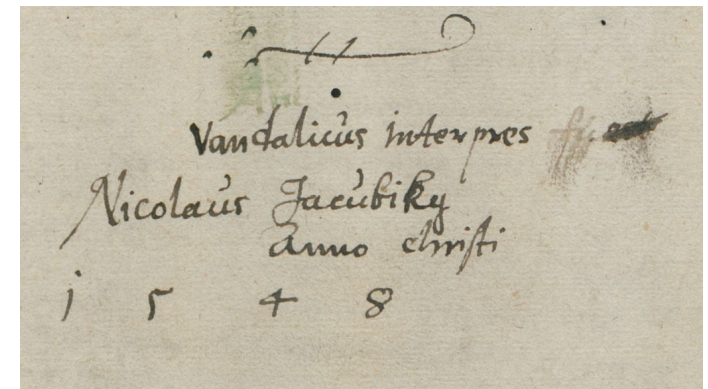 Vandalicus interpres
Nicolaus Jacubiky
anno christi
1 5 4 8